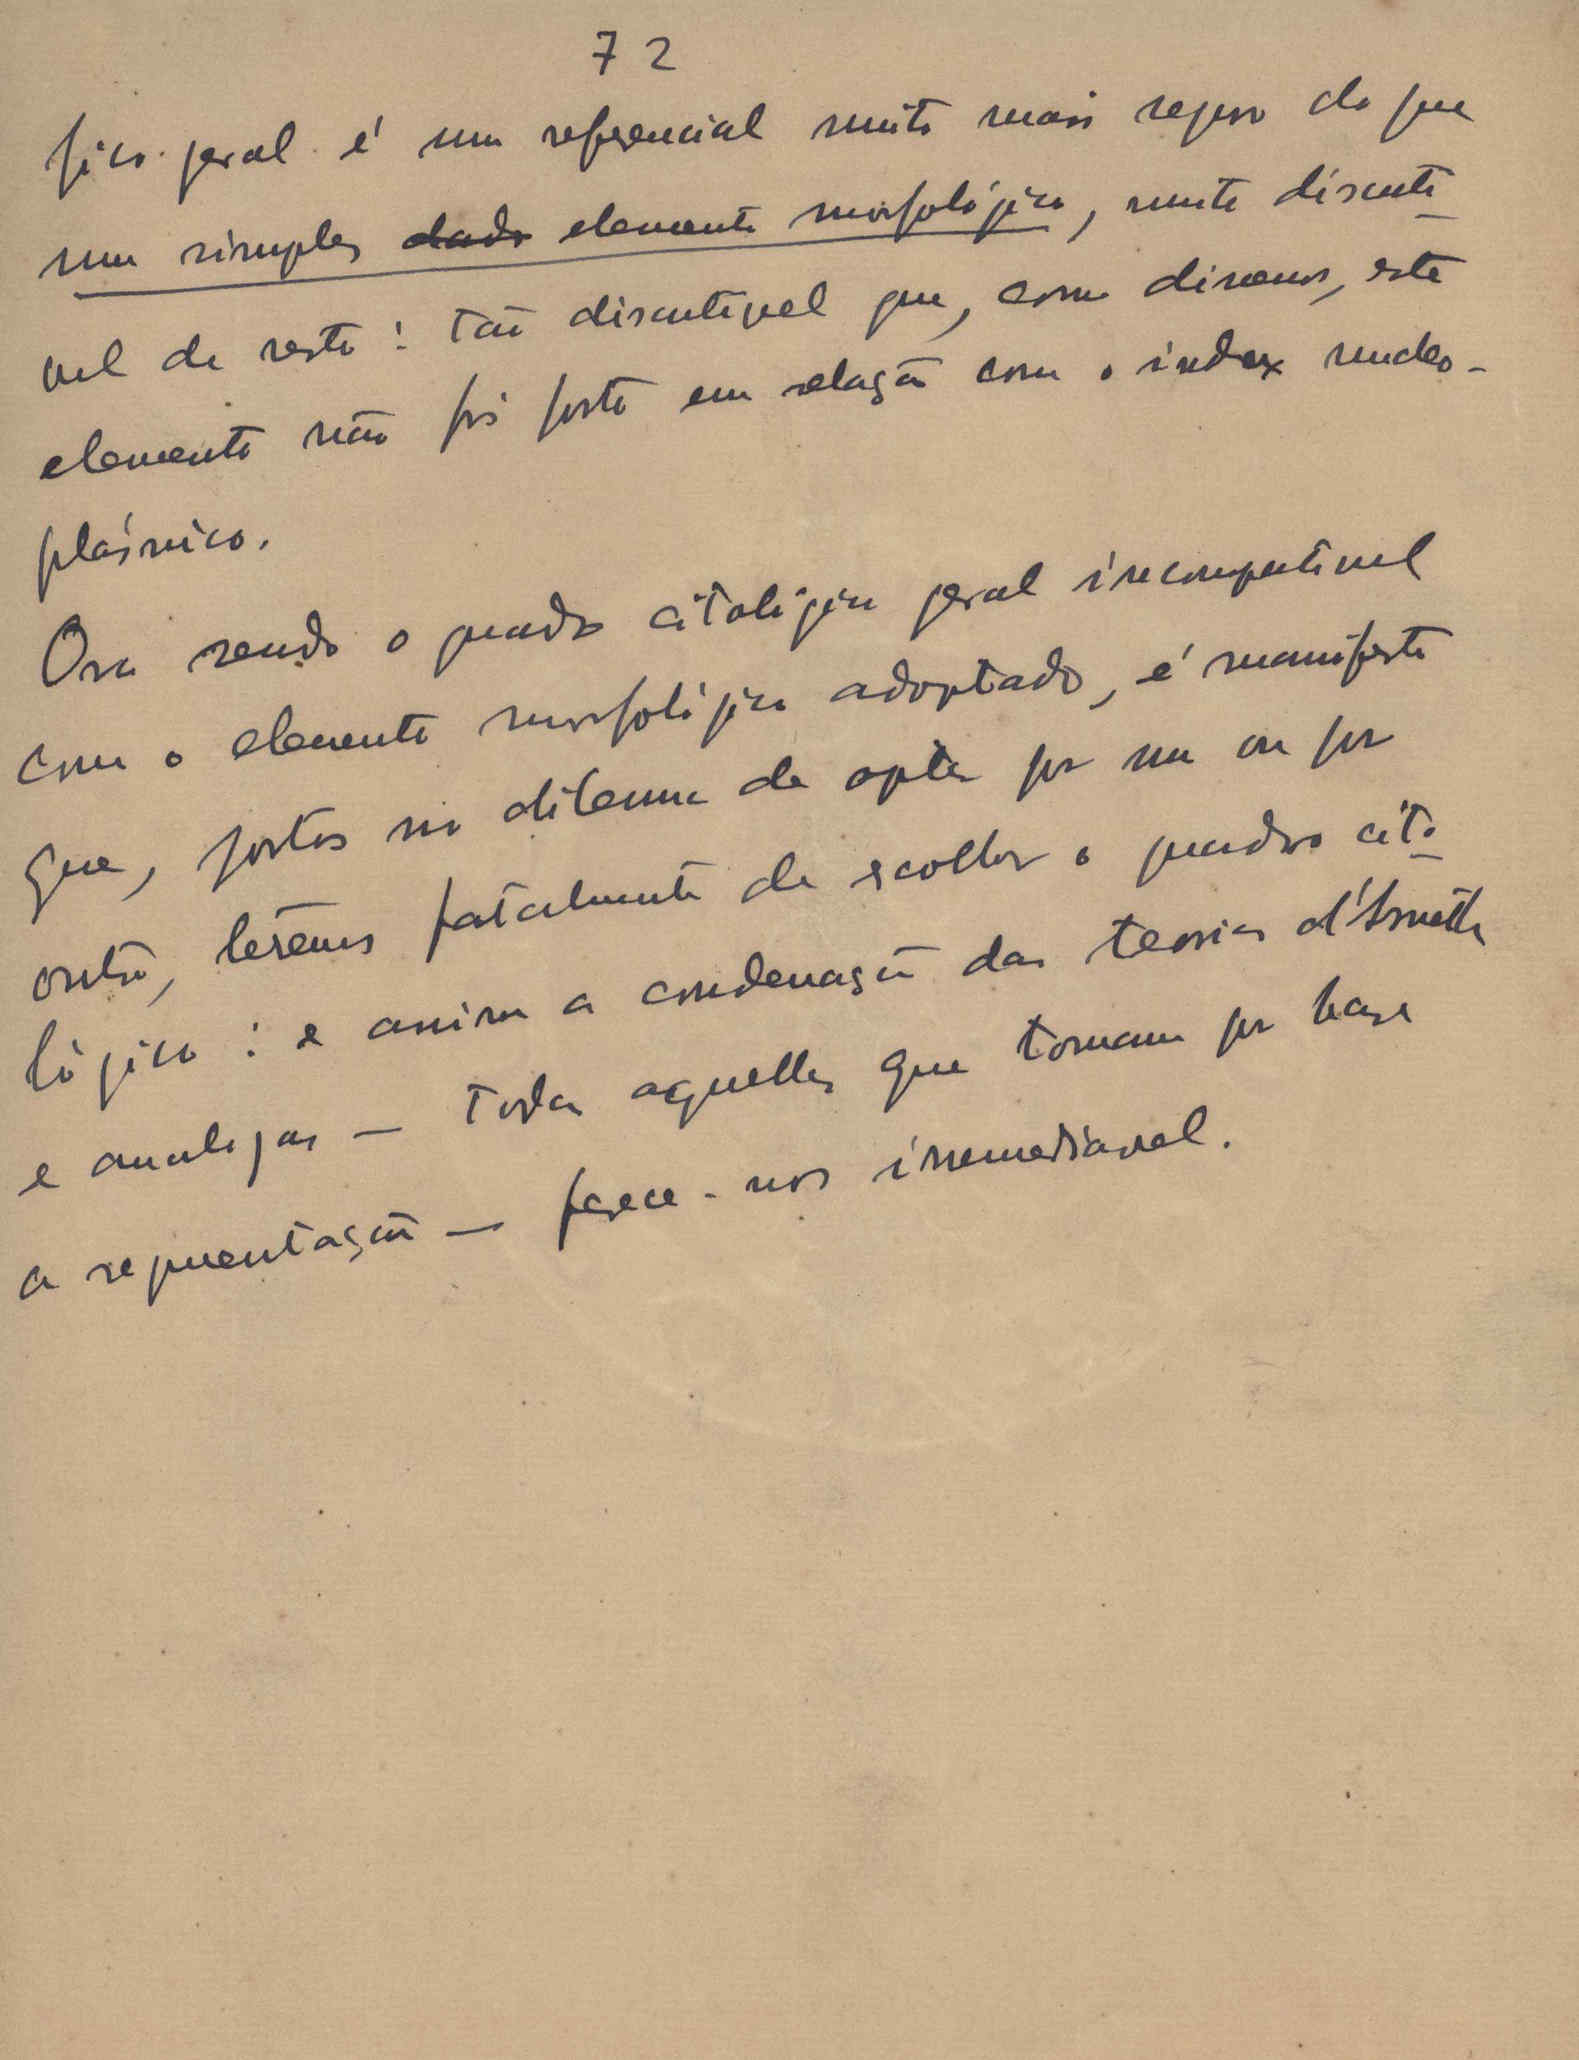 72
gico geral é um referencial muito mais seguro do que
um simples dado elemento morfológico, muito discuti
vel de resto: tão discutivel que, como dissemos, este
elemento não foi posto em relação com o index nucleo-
plásmico.
Ora sendo o quadro citológico geral incompativel
com o elemento morfológico adoptado, é manifesto
que, postos no dilema de optar por um ou por
outro, terêmos fatalmente de escolher o quadro cito
lógico: e assim a condenação das teorias d'
e analogas — todas aquellas que tomam por base
a representação — parece-nos irremediavel.